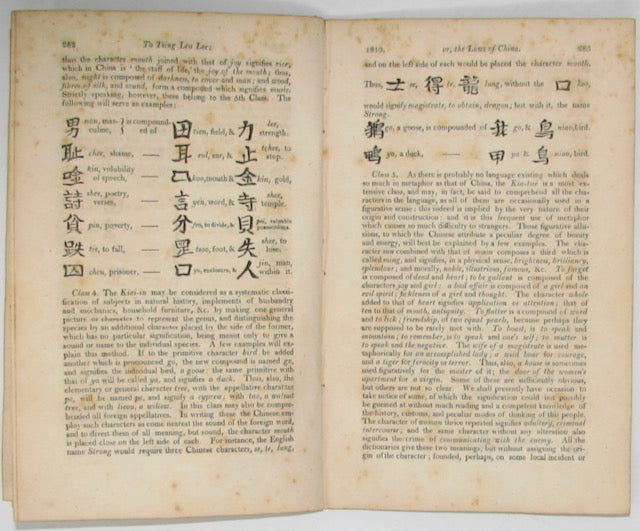 282 To Tsing Leu Lee;
thus the character mouth joined with that of joy signifies rice,
which in China is 'the staff of life,' the joy of the mouth; thus,
also, night is composed of darkness, to cover and man; and wood,
form of silk, and sound, form a compound which signifies music.
Strictly speaking, however, these belong to the 6th Class. The
following will serve as examples:
男 nan, man- is compound- 田 tien, field, & 力 lee,
culine, ed of strength.
恥 chee, shame, — 耳 eul, ear, & 止 tchee, to
stop.
唫 kin, volubility — 口 mouth & 金 kin, gold,
of speech,
詩 shee, poetry, — 言 yen, word, & 寺 shee,
verses, temple.
貧 pin, poverty, — 分 fen, to divide, & 貝 pei, valuable
possessions.
跌 tie, to fall, — tsoo, foot, & 失 shee, to
lose.
囚 cheu, prisoner, — 口 enclosure, & 人 jin, man,
within it.
Class 4. The Kiai-in may be considered as a systematic classi-
fication of subjects in natural history, implements of husbandry
and mechanics, household furniture, &c. by making one general
picture or character to represent the genus, and distinguishing the
species by an additional character placed by the side of the former,
which has no particular signification, being meant only to give a
sound or name to the individual species. A few examples will ex-
plain this method. If to the primitive character bird be added
another which is pronounced go, the new compound is named go,
and signifies the individual bird, a goose: the same primitive with
that of ya will be called ya, and signifies a duck. Thus, also, the
elementary or general character tree, with the appellative character
pe, will be named pe, and signify a cypress; with tao, a walnut
tree, and with lieou, a willow. In this class may also be compre-
hended all foreign appellatives. In writing these the Chinese em-
ploy such characters as come nearest the sound of the foreign word,
and to divest them of all meaning, but sound, the character mouth
is placed close on the left side of each. For instance, the English
name Strong would require three Chinese characters, se, te, lung,
1810. or, the Laws of China. 283
and on the left side of each would be placed the character mouth.
Thus, 士 se, 得 te, 龍 lung, without the 口 koo,
would signify magistrate, to obtain, dragon; but with it, the name
Strong.
鵝 go, a goose, is compounded of 我 go, & 鳥 niao, bird.
鴨 ya, a duck, — 甲 ya & 鳥 niao, bird.
Class 5. As there is probably no language existing which deals
so much in metaphor as that of China, the Kia-tsie is a most ex-
tensive class, and may, in fact, be said to comprehend all the cha-
racters in the language, as all of them are occasionally used in a
figurative sense: this indeed is implied by the very nature of their
origin and construction: and it is this frequent use of metaphor
which causes so much difficulty to strangers. Those figurative allu-
sions, to which the Chinese attribute a peculiar degree of beauty
and energy, will best be explained by a few examples. The cha-
racter sun combined with that of moon composes a third which is
called ming, and signifies, in a physical sense, brightness, brilliency,
splendour; and morally, noble, illustrious, famous, &c. To forget
is composed of dead and heart; to be gallant is composed of the
characters joy and girl: a bad affair is composed of a girl and an
evil spirit; fickleness of a girl and thought. The character whole
added to that of heart signifies application or attention; that of
ten to that of mouth, antiquity. To flatter is a compound of word
and to lick; friendship, of two equal pearls, because perfect they
are supposed to be rarely met with. To boast, is to speak and
mountain; to remember, is to speak and one's self; to mutter is
to speak and the negative. The wife of a magistrate is used me-
taphorically for an accomplished lady; a wild boar for courage,
and a tiger for ferocity or terror. Thus, also, a house is sometimes
used figuratively for the master of it; the door of the women's
apartment for a virgin. Some of these are sufficiently obvious,
but others are not so clear. We shall presently have occasion to
take notice of some, of which the signification could not possibly
be guessed at without much reading and a competent knowledge of
the history, customs, and peculiar modes of thinking of this people.
The character of woman thrice repeated signifies adultery, criminal
intercourse, and the same character without any alteration also
signifies the crime of communicating with the enemy. All the
dictionaries give these two meanings, but without assigning the ori-
gin of the character; founded, perhaps, on some local incident or